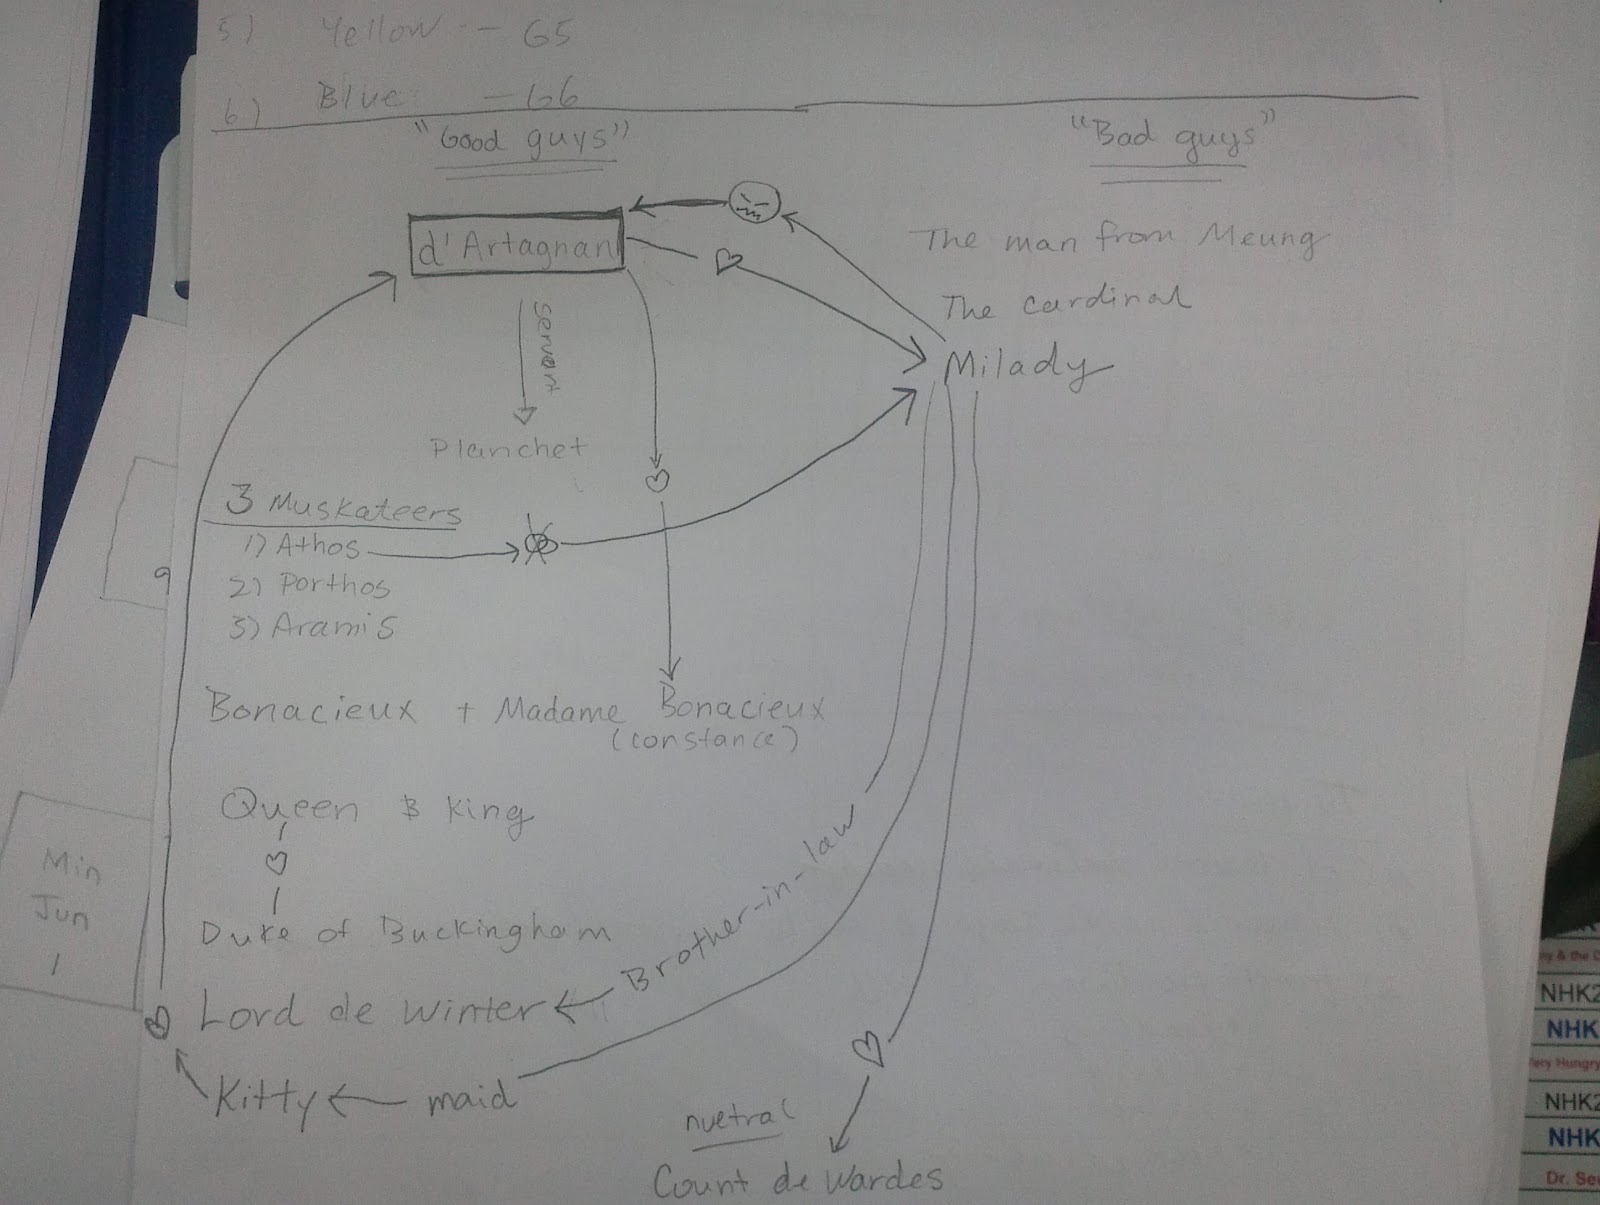 5) Yellow - 65
6) Blue - 66
"Good guys"
"Bad guys"
d'Artagnan
The man from Meung
The cardinal
Milady
servant
Planchet
3 Muskateers
1) Athos
2) Porthos
3) Aramis
Bonacieux + Madame Bonacieux
(constance)
Queen & King
Duke of Buckingham
Brother-in-law
Lord de Winter
Kitty
maid
nuetral
Count de Wardes
Min
Jun
1
9
NHK2
NHK
ery Hungry
NHK2
NHK
Dr. Se